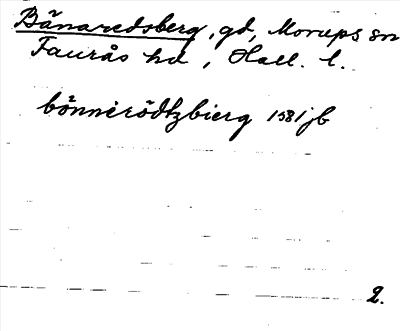 Bånaredsberg, gd, Morups sn
Faurås hd, Hall. l.
bönnerödtzbierg 1581 jb
2.